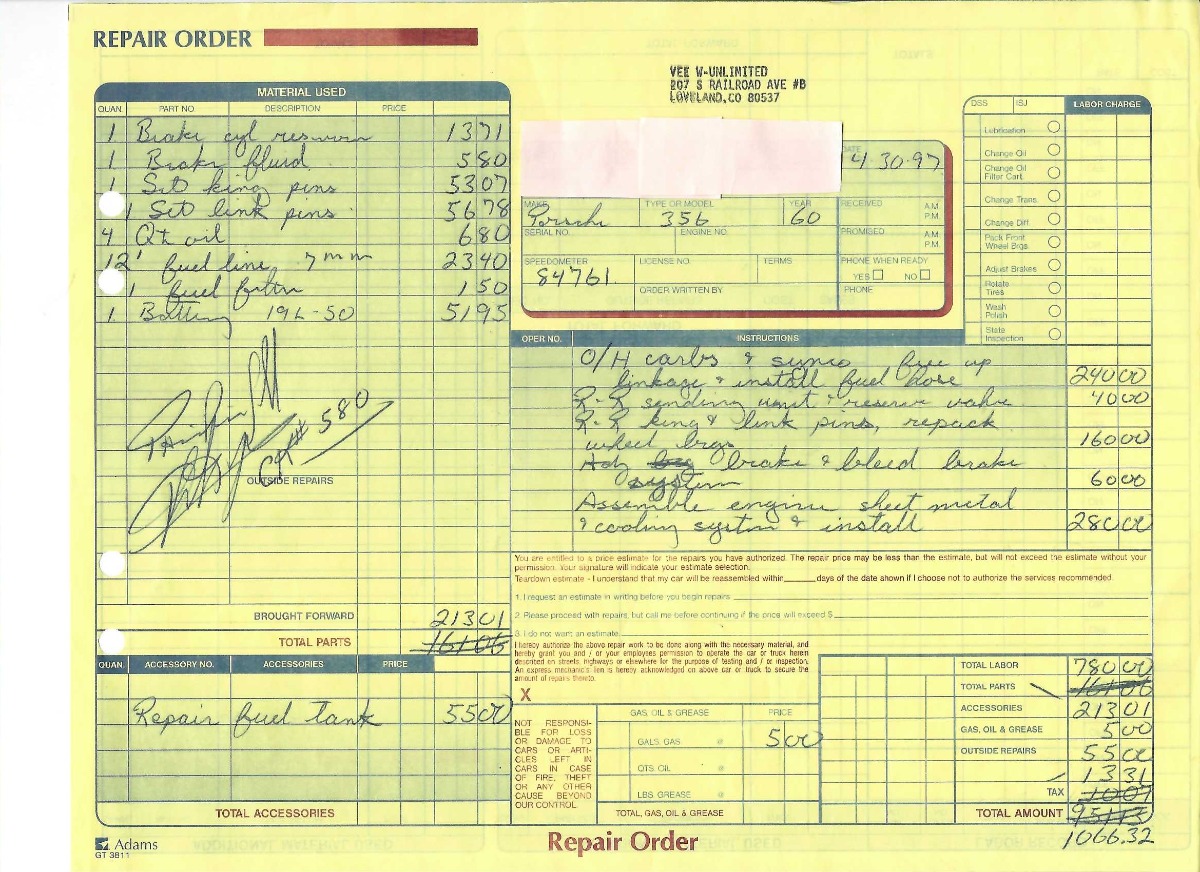 REPAIR ORDER
VEE W-UNLIMITED
207 S RAILROAD AVE #B
LOVELAND,CO 80537
MATERIAL USED
QUAN. PART NO. DESCRIPTION PRICE
1 Brake cyl 13 71
1 Brake fluid 5 80
1 Set king pins 53 07
1 Set link pins 56 78
4 Qt oil 6 80
12' fuel line 7mm 23 40
1 fuel 1 50
1 Battery 19L-50 51 95
CK# 580
OUTSIDE REPAIRS
BROUGHT FORWARD 213 01
TOTAL PARTS 161 06
QUAN. ACCESSORY NO. ACCESSORIES PRICE
Repair fuel tank 55 00
TOTAL ACCESSORIES
Adams
GT 3811
DATE 4-30-97
MAKE Porsche TYPE OR MODEL 356 YEAR 60 RECEIVED A.M. P.M.
SERIAL NO. ENGINE NO. PROMISED A.M. P.M.
SPEEDOMETER 84761 LICENSE NO. TERMS PHONE WHEN READY
YES NO
ORDER WRITTEN BY PHONE
DSS ISJ LABOR CHARGE
Lubrication
Change Oil
Change Oil Filter Cart.
Change Trans.
Change Diff.
Pack Front Wheel Brgs.
Adjust Brakes
Rotate Tires
Wash Polish
State Inspection
OPER NO. INSTRUCTIONS
O/H carbs & sync free up
linkage & install fuel hose 240 00
R-R sending unit & reserve valve 40 00
R-R king & link pins, repack
wheel brgs 160 00
Adj brake & bleed brake
system 60 00
Assemble engine sheet metal
& cooling system & install 280 00
You are entitled to a price estimate for the repairs you have authorized. The repair price may be less than the estimate, but will not exceed the estimate without your
permission. Your signature will indicate your estimate selection.
Teardown estimate - I understand that my car will be reassembled within ______ days of the date shown if I choose not to authorize the services recommended.
1. I request an estimate in writing before you begin repairs.
2. Please proceed with repairs, but call me before continuing if the price will exceed $
3. I do not want an estimate.
I hereby authorize the above repair work to be done along with the necessary material, and
hereby grant you and / or your employees permission to operate the car or truck herein
described on streets, highways or elsewhere for the purpose of testing and / or inspection.
An express mechanic's lien is hereby acknowledged on above car or truck to secure the
amount of repairs thereto.
X
NOT RESPONSI-
BLE FOR LOSS
OR DAMAGE TO
CARS OR ARTI-
CLES LEFT IN
CARS IN CASE
OF FIRE, THEFT
OR ANY OTHER
CAUSE BEYOND
OUR CONTROL
GAS, OIL & GREASE PRICE
GALS. GAS @ 5 00
QTS. OIL @
LBS. GREASE @
TOTAL, GAS, OIL & GREASE
TOTAL LABOR 780 00
TOTAL PARTS 161 06
ACCESSORIES 213 01
GAS, OIL & GREASE 5 00
OUTSIDE REPAIRS 55 00
13 31
TAX 10 07
TOTAL AMOUNT 951 13
1066.32
Repair Order